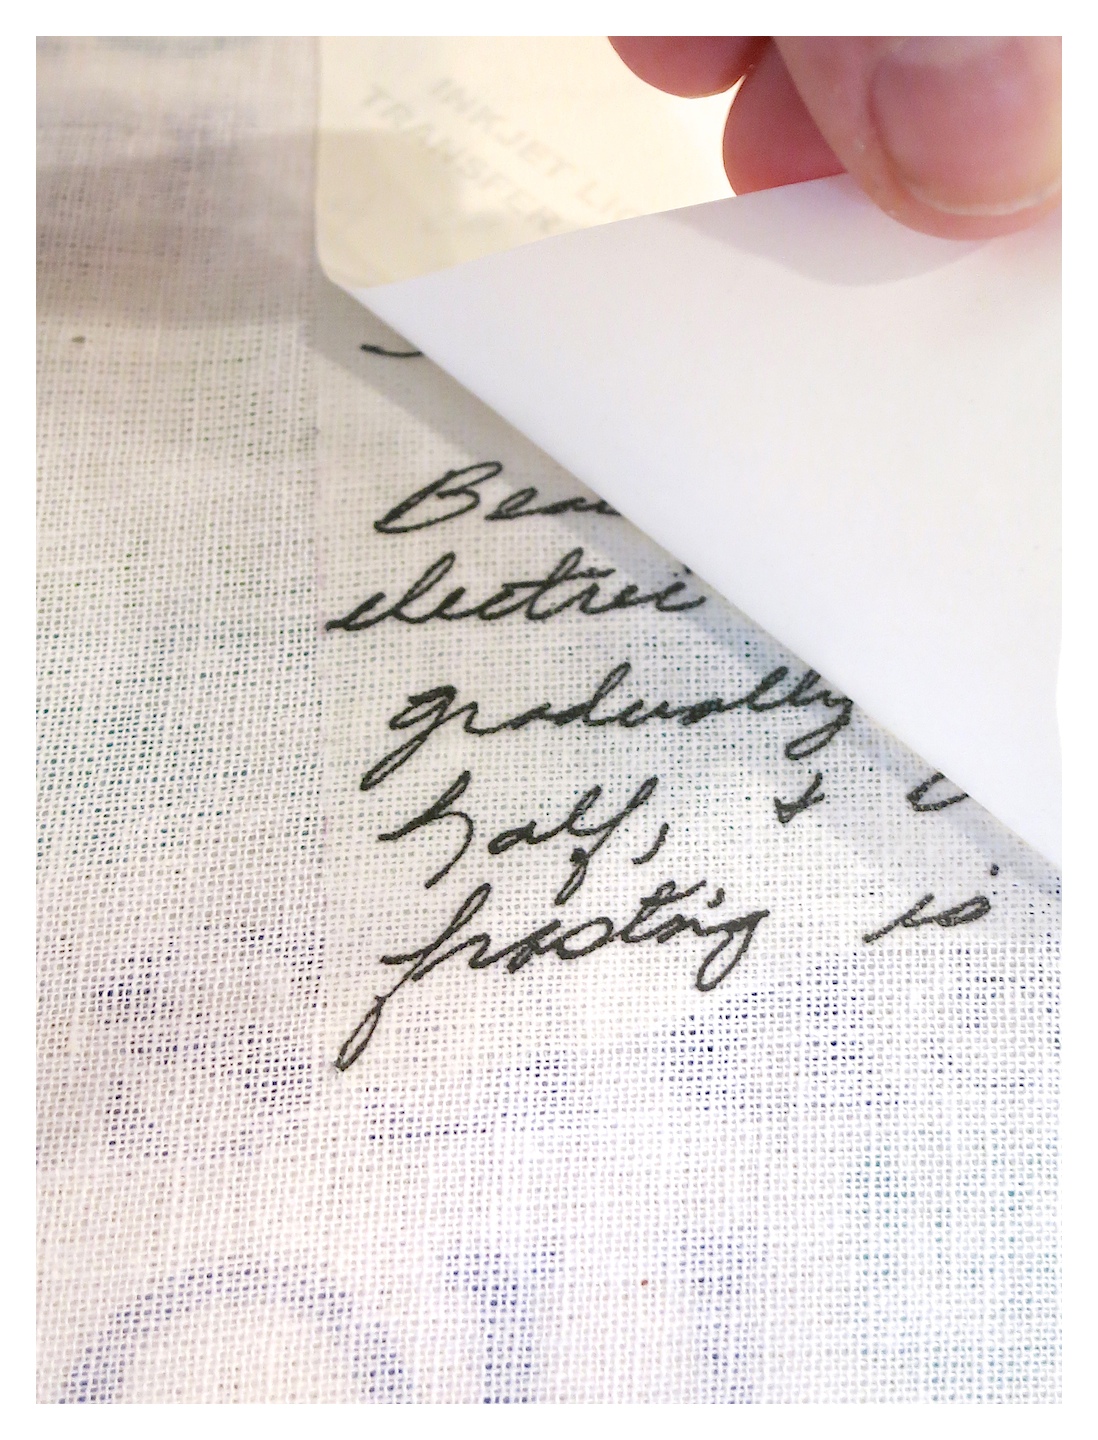 INKJET
TRANSFER
electric
gradually
half, &
frosting is